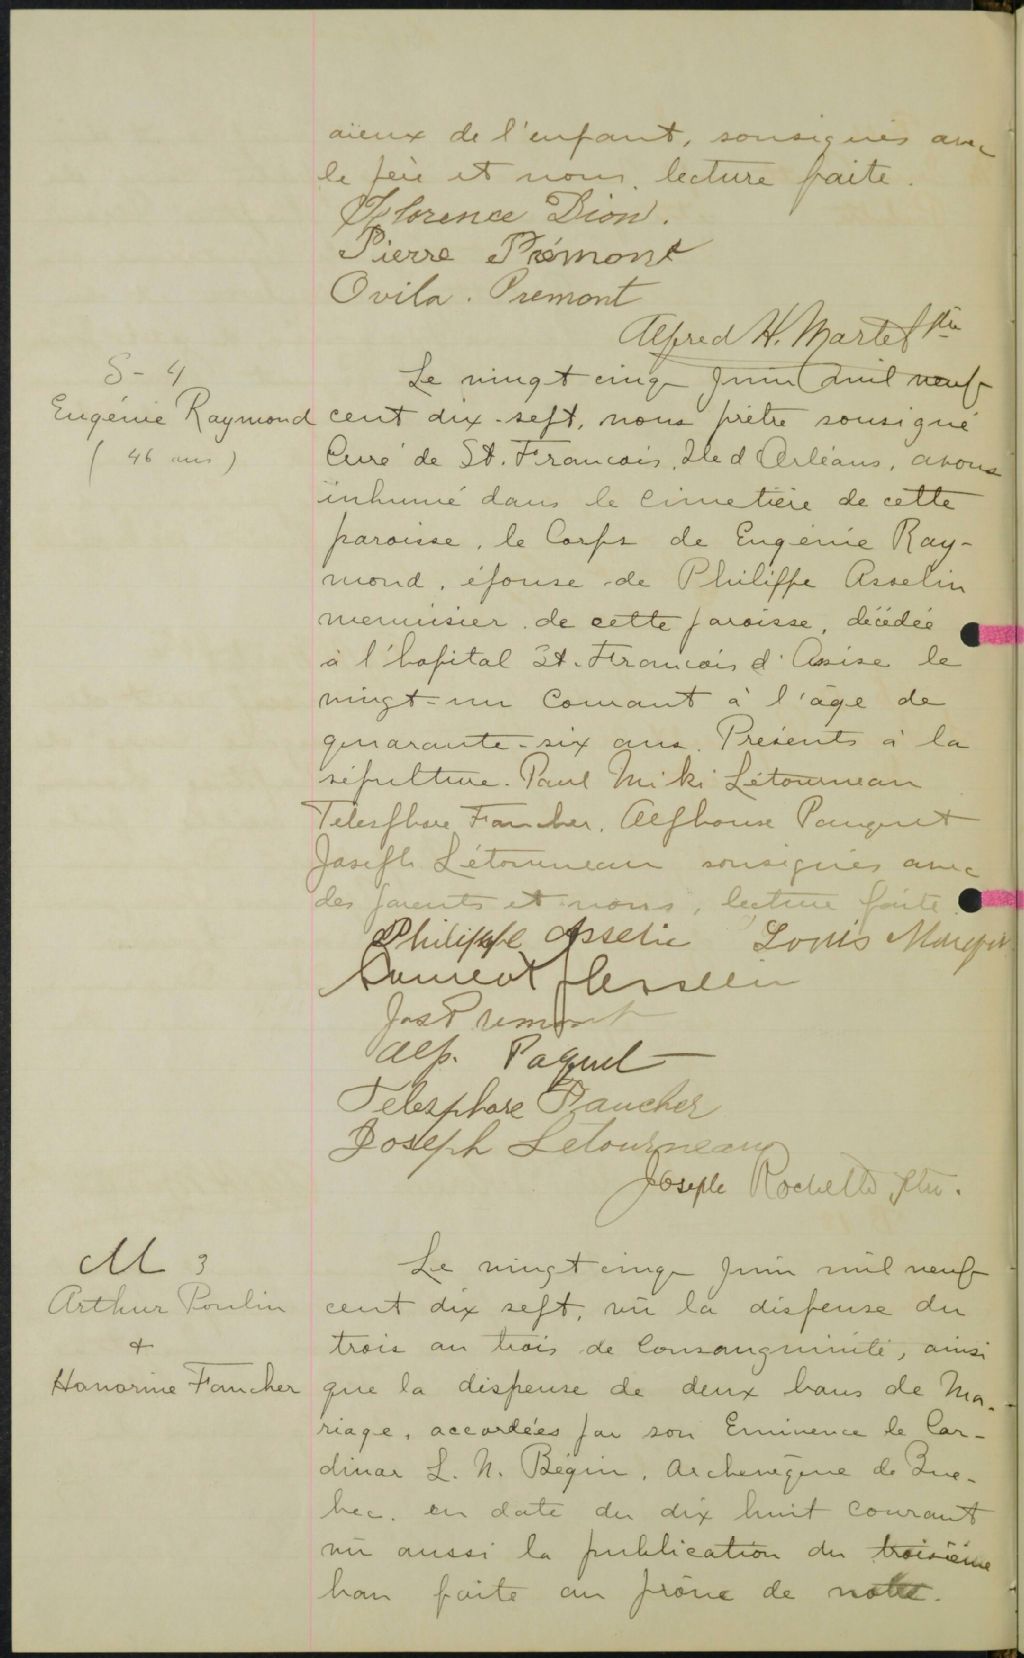 aïeux de l'enfant, sousignés avec
le père et nous, lecture faite.
Florence Dion.
Pierre Prémont
Ovila. Premont
Alfred H. Martel Ptre
S - 4
Eugénie Raymond
( 46 ans )
Le vingt cinq Juin mil neuf
cent dix-sept, nous prêtre sousigné
Curé de St. Francois, Ile d'Orléans, avons
inhumé dans le cimetière de cette
paroisse, le Corps de Eugénie Ray-
mond, épouse de Philippe Asselin
menuisier de cette paroisse, décédée
à l'hopital St. Francois d'Assise le
vingt-un Courant à l'âge de
quarante-six ans. Présents à la
sépulture. Paul Miki Létourneau
Telesphore Faucher, Alphonse Paquet
Joseph Létourneau sousignés avec
des parents et nous, lecture faite.
Philippe Asselin Louis
Jos Premont
Alp. Paquet
Telesphore Faucher
Joseph Letourneau
Joseph Rochette Ptre.
M 3
Arthur Poulin
+
Honorine Faucher
Le vingt cinq Juin mil neuf
cent dix sept, vû la dispense du
trois au trois de Consanguinité, ainsi
que la dispense de deux bans de Ma-
riage, accordées par son Eminence le Car-
dinal L. N. Bégin, Archevêque de Que-
bec, en date du dix huit courant
vû aussi la publication du troisième
ban faite au prône de notre